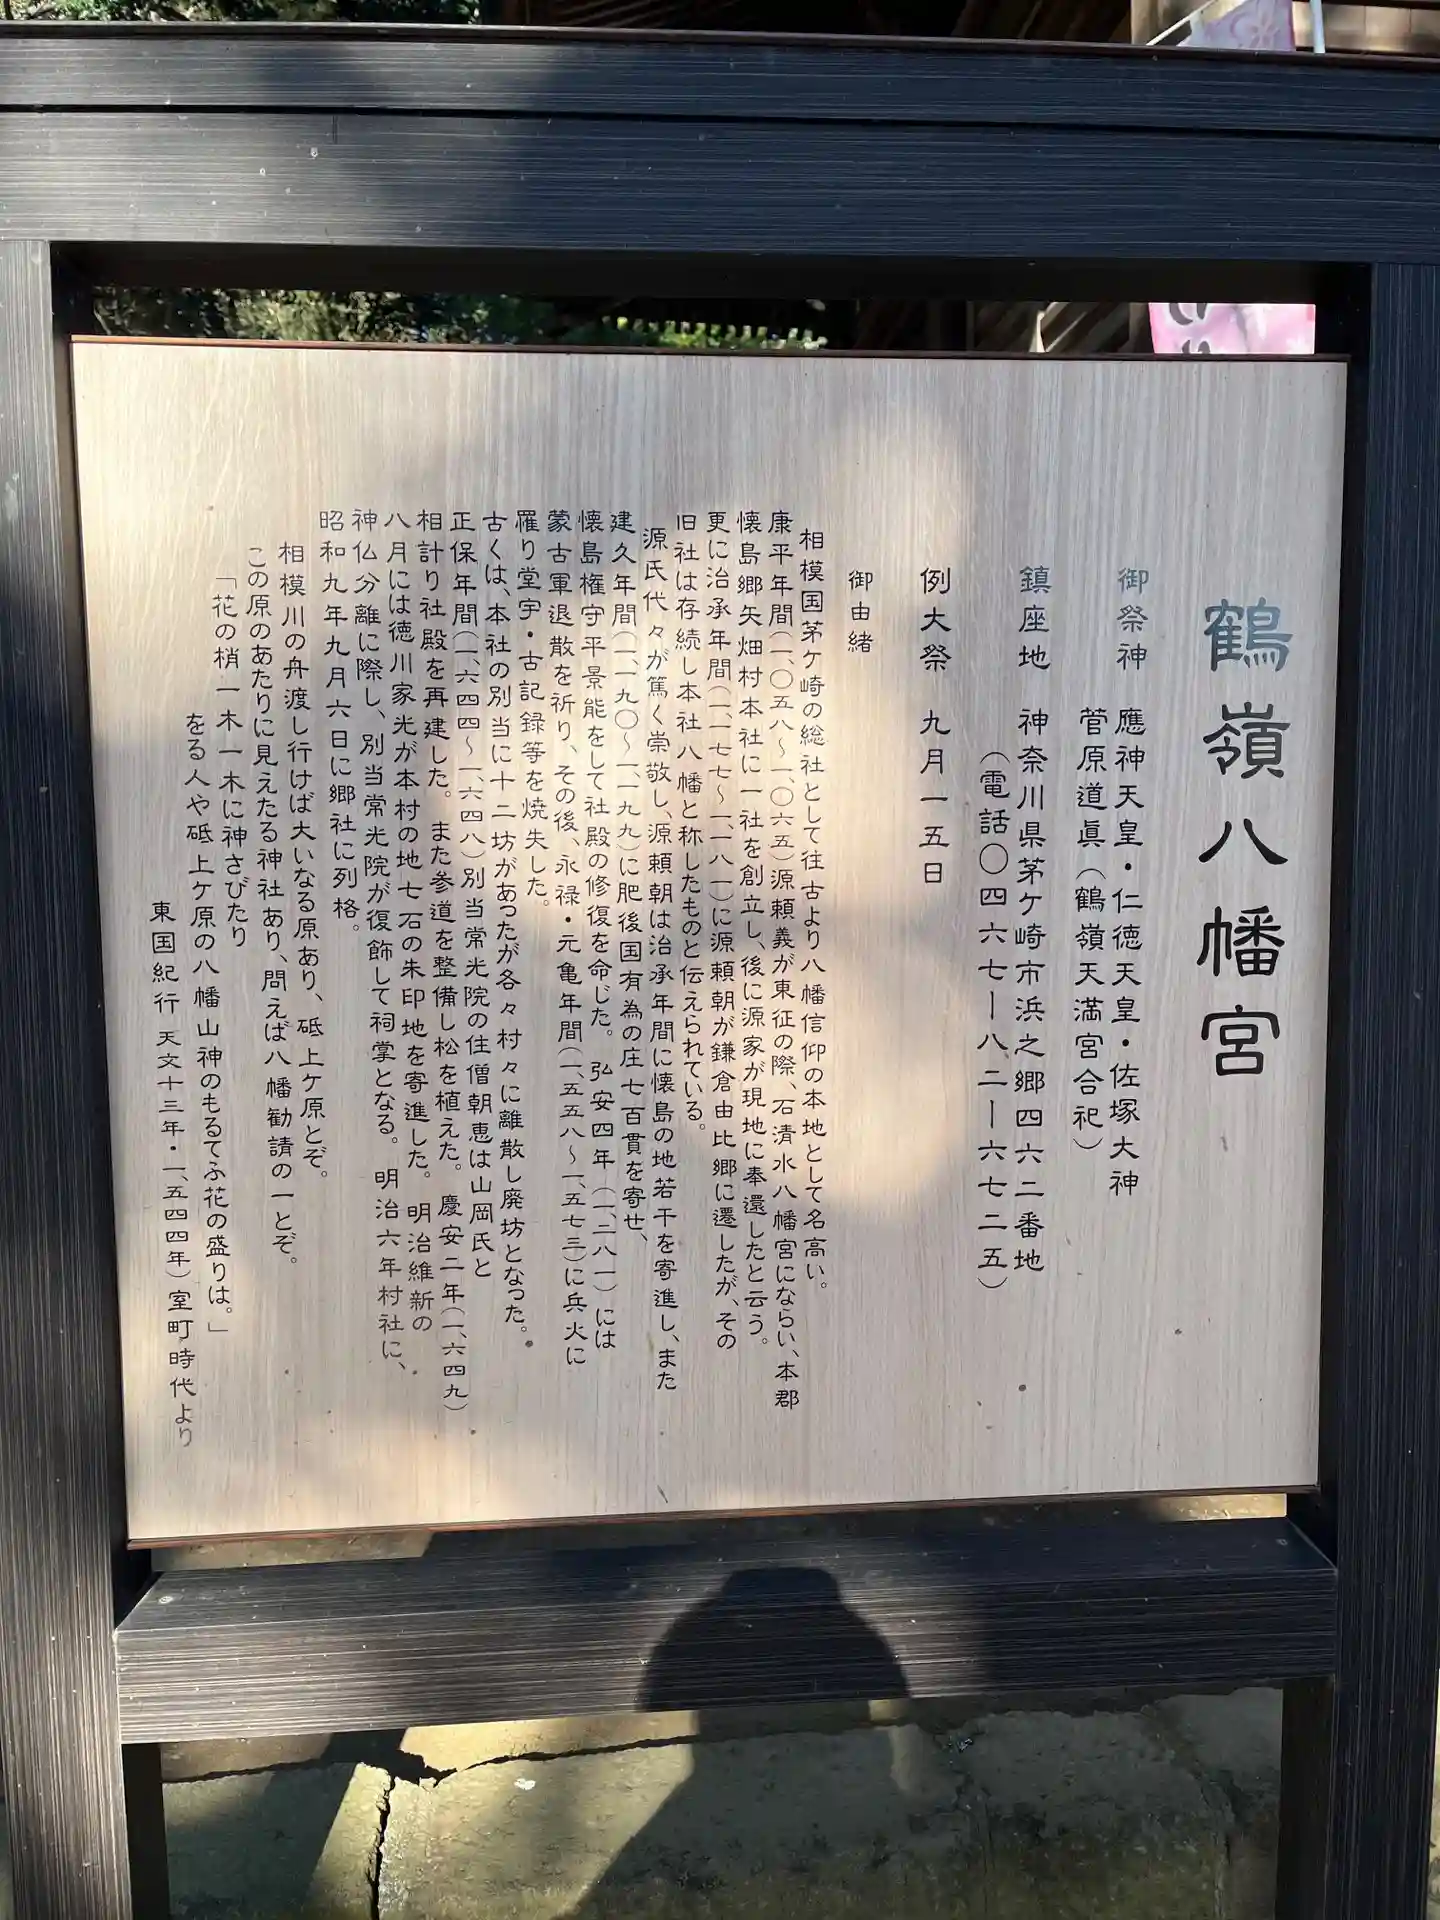 鶴嶺八幡宮
御祭神 應神天皇・仁徳天皇・佐塚大神
菅原道眞（鶴嶺天満宮合祀）
鎮座地 神奈川県茅ケ崎市浜之郷四六二番地
（電話〇四六七ー八二ー六七二五）
例大祭 九月一五日
御由緒
相模国茅ケ崎の総社として往古より八幡信仰の本地として名高い。
康平年間（一、〇五八〜一、〇六五）源頼義が東征の際、石清水八幡宮にならい、本郡
懐島郷矢畑村本社に一社を創立し、後に源家が現地に奉還したと云う。
更に治承年間（一、一七七〜一、一八一）に源頼朝が鎌倉由比郷に遷したが、その
旧社は存続し本社八幡と称したものと伝えられている。
源氏代々が篤く崇敬し、源頼朝は治承年間に懐島の地若干を寄進し、また
建久年間（一、一九〇〜一、一九九）に肥後国有為の庄七百貫を寄せ、
懐島権守平景能をして社殿の修復を命じた。弘安四年（一、二八一）には
蒙古軍退散を祈り、その後、永禄・元亀年間（一、五五八〜一、五七三）に兵火に
罹り堂宇・古記録等を焼失した。
古くは、本社の別当に十二坊があったが各々村々に離散し廃坊となった。
正保年間（一、六四四〜一、六四八）別当常光院の住僧朝恵は山岡氏と
相計り社殿を再建した。また参道を整備し松を植えた。慶安二年（一、六四九）
八月には徳川家光が本村の地七石の朱印地を寄進した。明治維新の
神仏分離に際し、別当常光院が復飾して祠掌となる。明治六年村社に、
昭和九年九月六日に郷社に列格。
相模川の舟渡し行けば大いなる原あり、砥上ケ原とぞ。
この原のあたりに見えたる神社あり、問えば八幡勧請の一とぞ。
「花の梢一木一木に神さびたり
をる人や砥上ケ原の八幡山神のもるてふ花の盛りは。」
東国紀行 天文十三年・一、五四四年）室町時代より